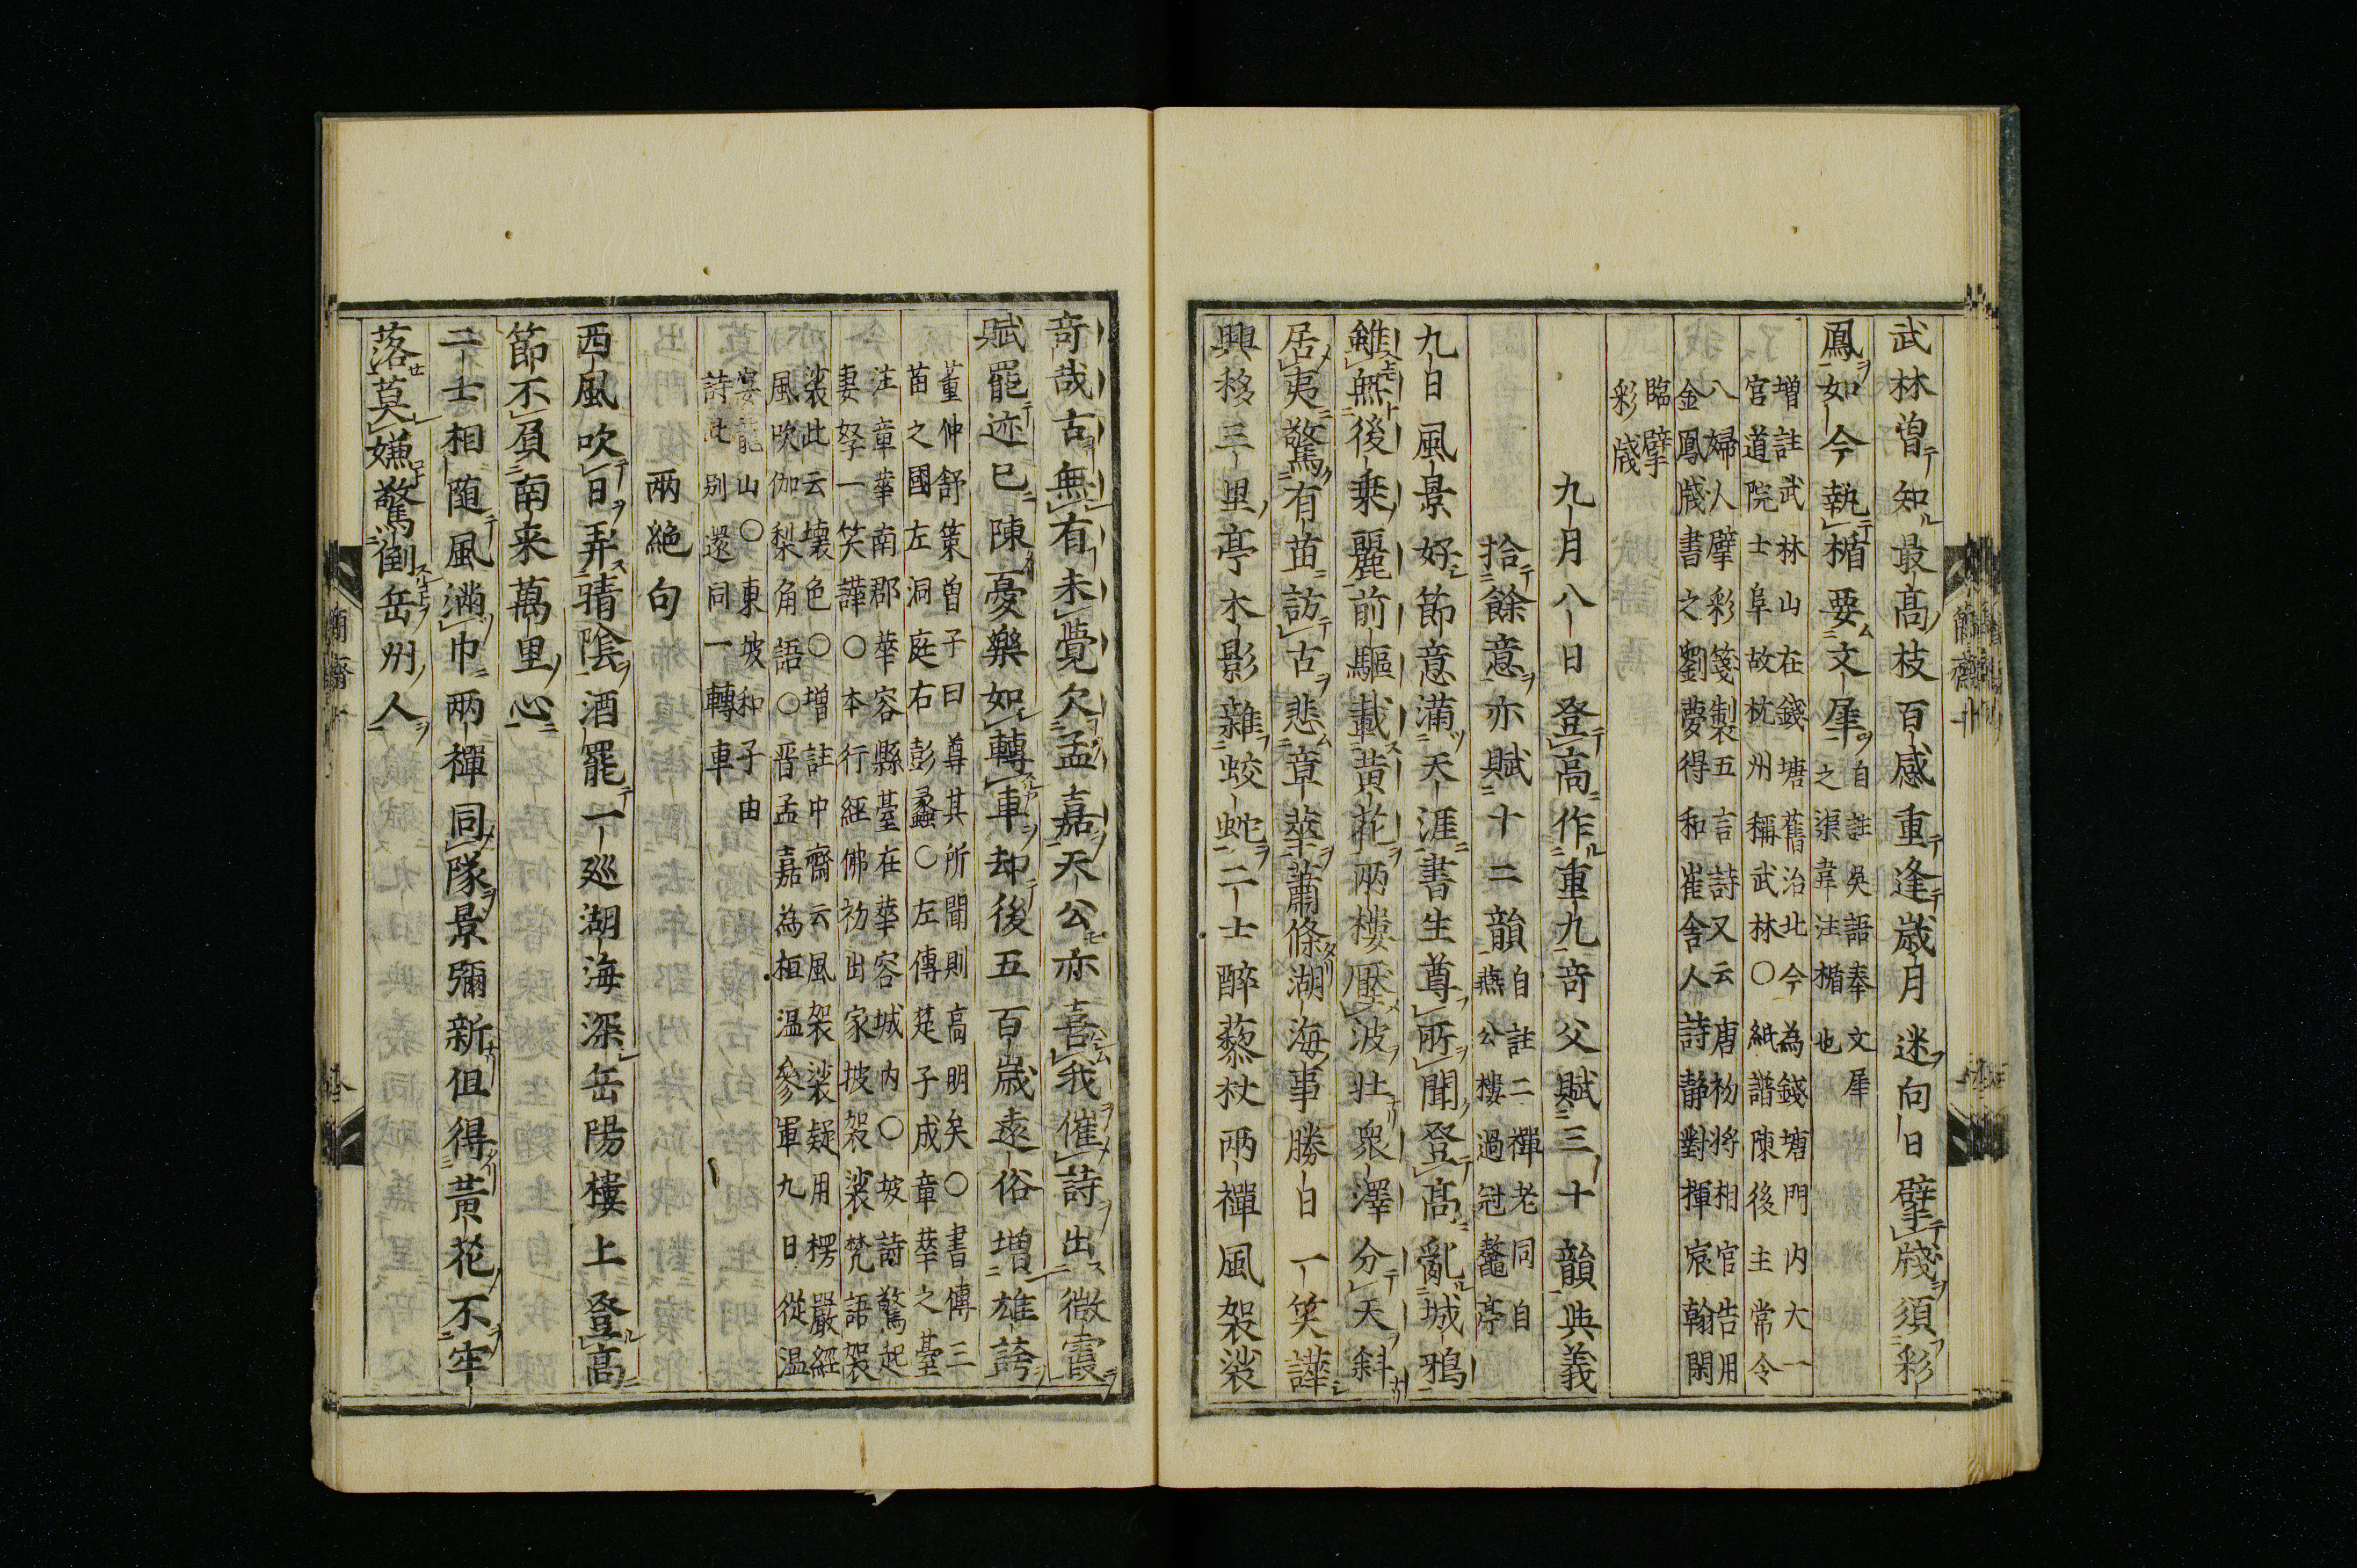 武林曽知最高枝百感重逢歳月迷向日擘牋須彩
鳳如今執楯要文犀
自註吳語奉文犀
之渠韋注楯也
增註武林山在錢塘舊治北今為錢塘門内大一
宮道院士阜故杭州稱武林○紙譜陳後主常令
八婦人擘彩箋製五言詩又云唐初将相官告用
金鳳牋書之劉夢得和崔舎人詩静對揮宸翰閑
臨擘
彩牋
九月八日登高作重九竒父賦三十韻與義
拾餘意亦賦十二韻
自註二禪老同自
燕公樓過冠鼇亭
九日風景好節意満天涯書生尊所聞登髙亂城鴉
雖無後乗麗前驅載黄花兩樓壓波壮衆澤分天斜
居夷驚有苗訪古悲章華蕭條湖海事勝日一笑譁
興移三里亭木影雜蛟蛇二士醉藜杖兩禪風袈裟
竒哉古無有未覺欠孟嘉天公亦喜我催詩出微霞
賦罷迹已陳憂樂如轉車却後五百歳遠俗増雄誇
董仲舒策曽子曰尊其所聞則高明矣○書傳三
苗之國左洞庭右彭蠡○左傳楚子成章華之䑓
注章華南郡華容縣䑓在華容城内○坡詩驚起
妻孥一笑譁○本行經佛初出家披袈裟梵語袈
裟此云壊色○增註中齋云風袈裟疑用楞嚴經
風吹伽梨角語○晋孟嘉為桓温參軍九日從温
宴龍山○東坡和子由
詩此别還同一轉車
兩絶句
西風吹日弄晴陰酒罷一廵湖海深岳陽樓上登高
節不負南来萬里心
二士相随風滿巾兩禪同隊景彌新但得黄花不牢
落莫嫌驚倒岳州人